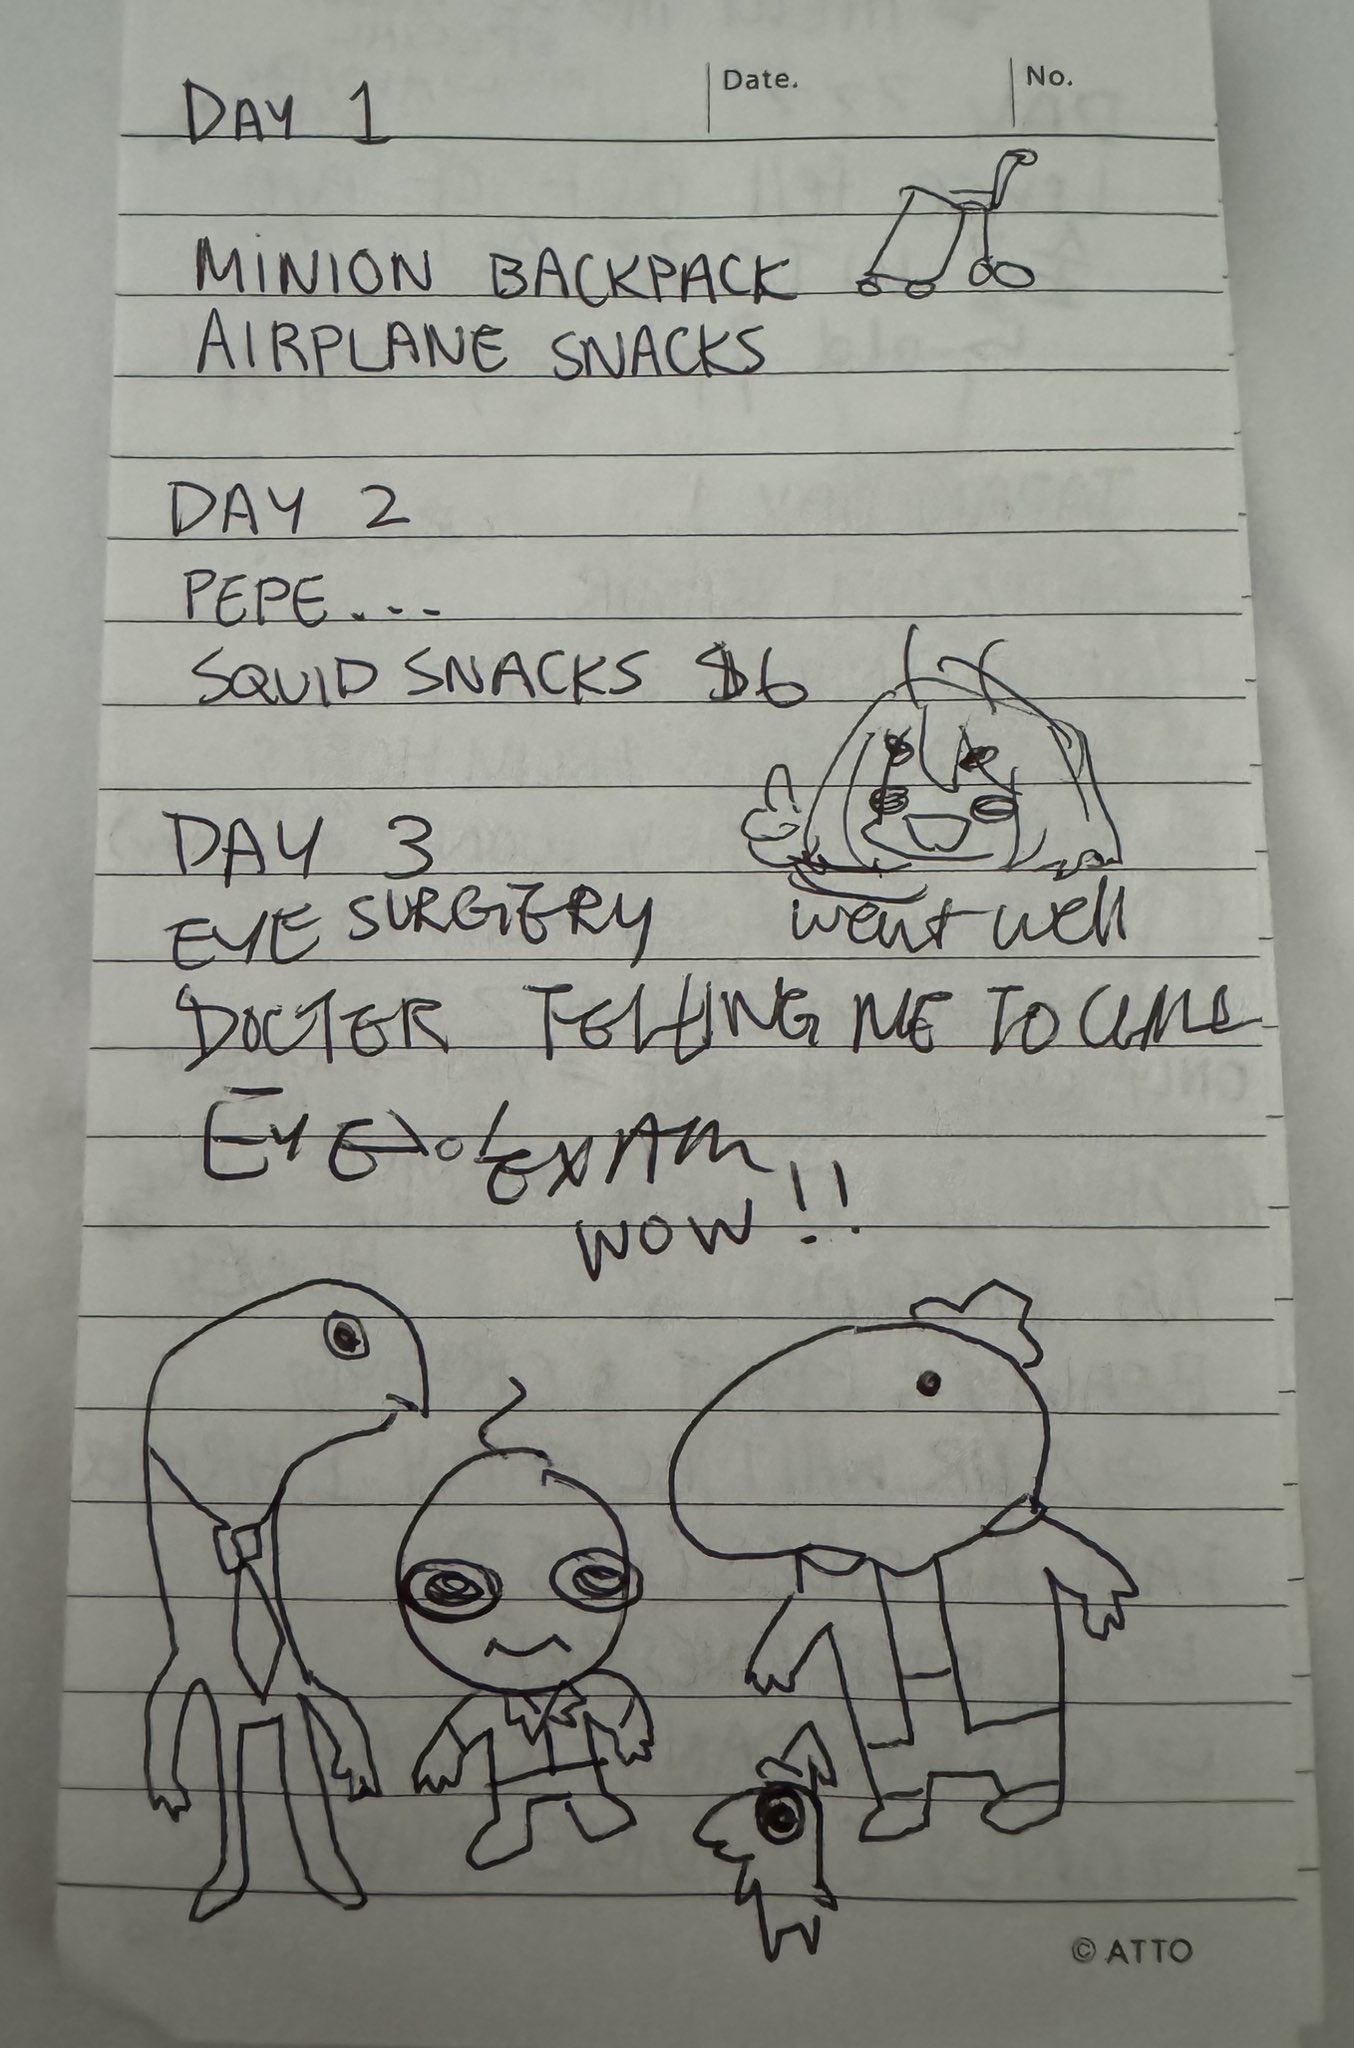 Date. No.
DAY 1
MINION BACKPACK
AIRPLANE SNACKS
DAY 2
PEPE...
SQUID SNACKS $6
DAY 3
EYE SURGERY went well
DOCTER TELLING ME TO
EYE EXAM
WOW!!
© ATTO